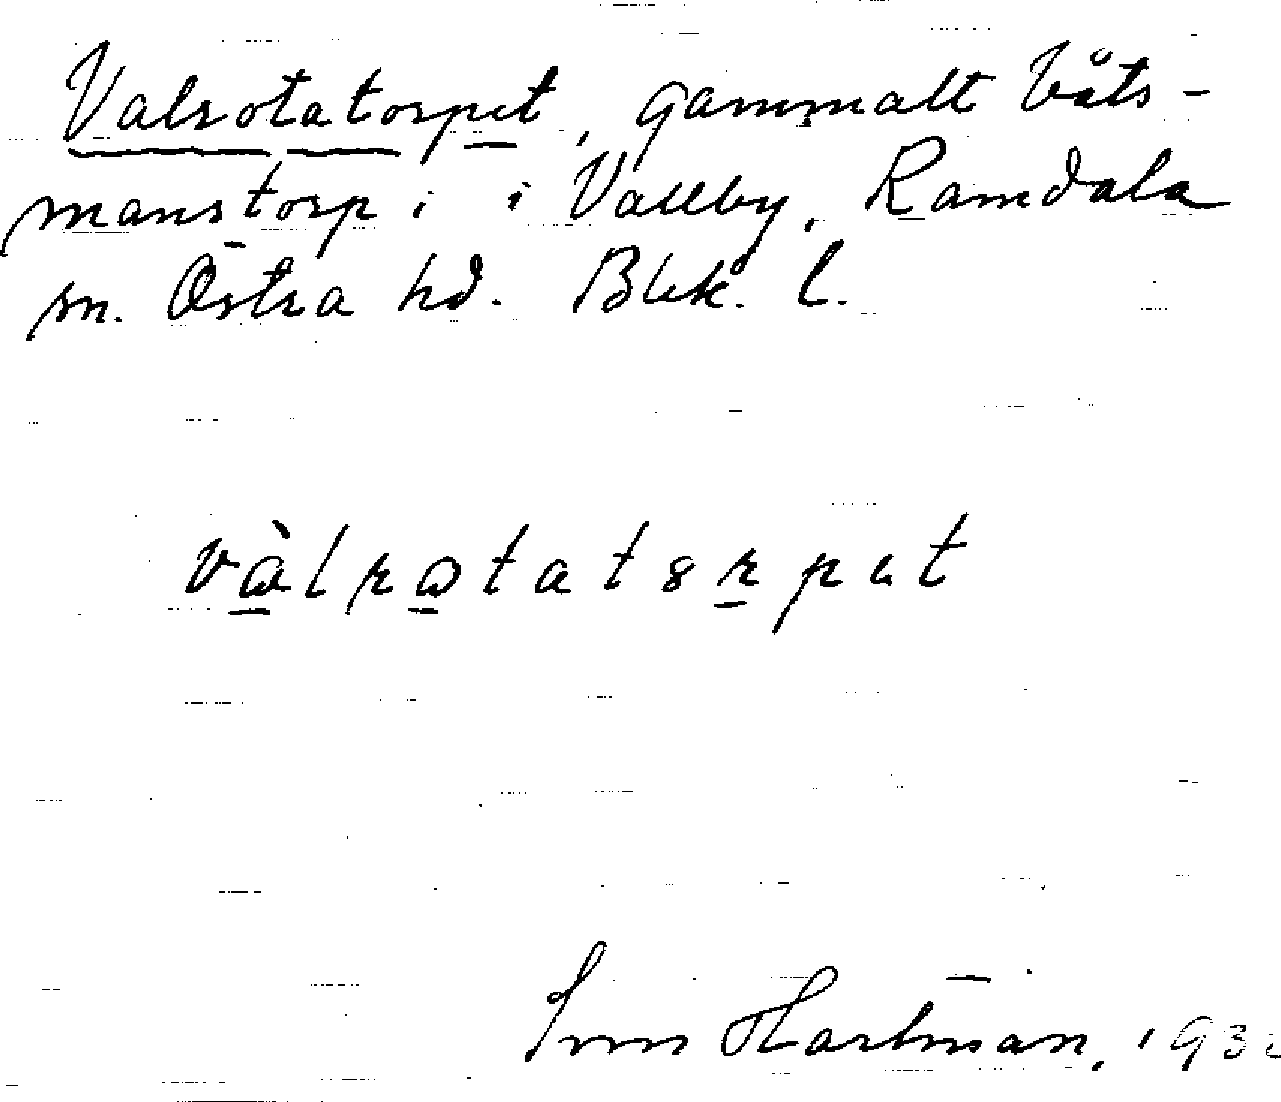 Valrotatorpet, gammalt båts-
manstorp i i Vallby, Ramdala
sn. Östra hd. Blek. l.
vàlrotatorpet
Hartman, 193